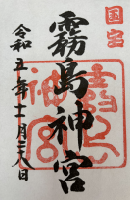 国宝
霧島神宮
令和五年十一月二八日